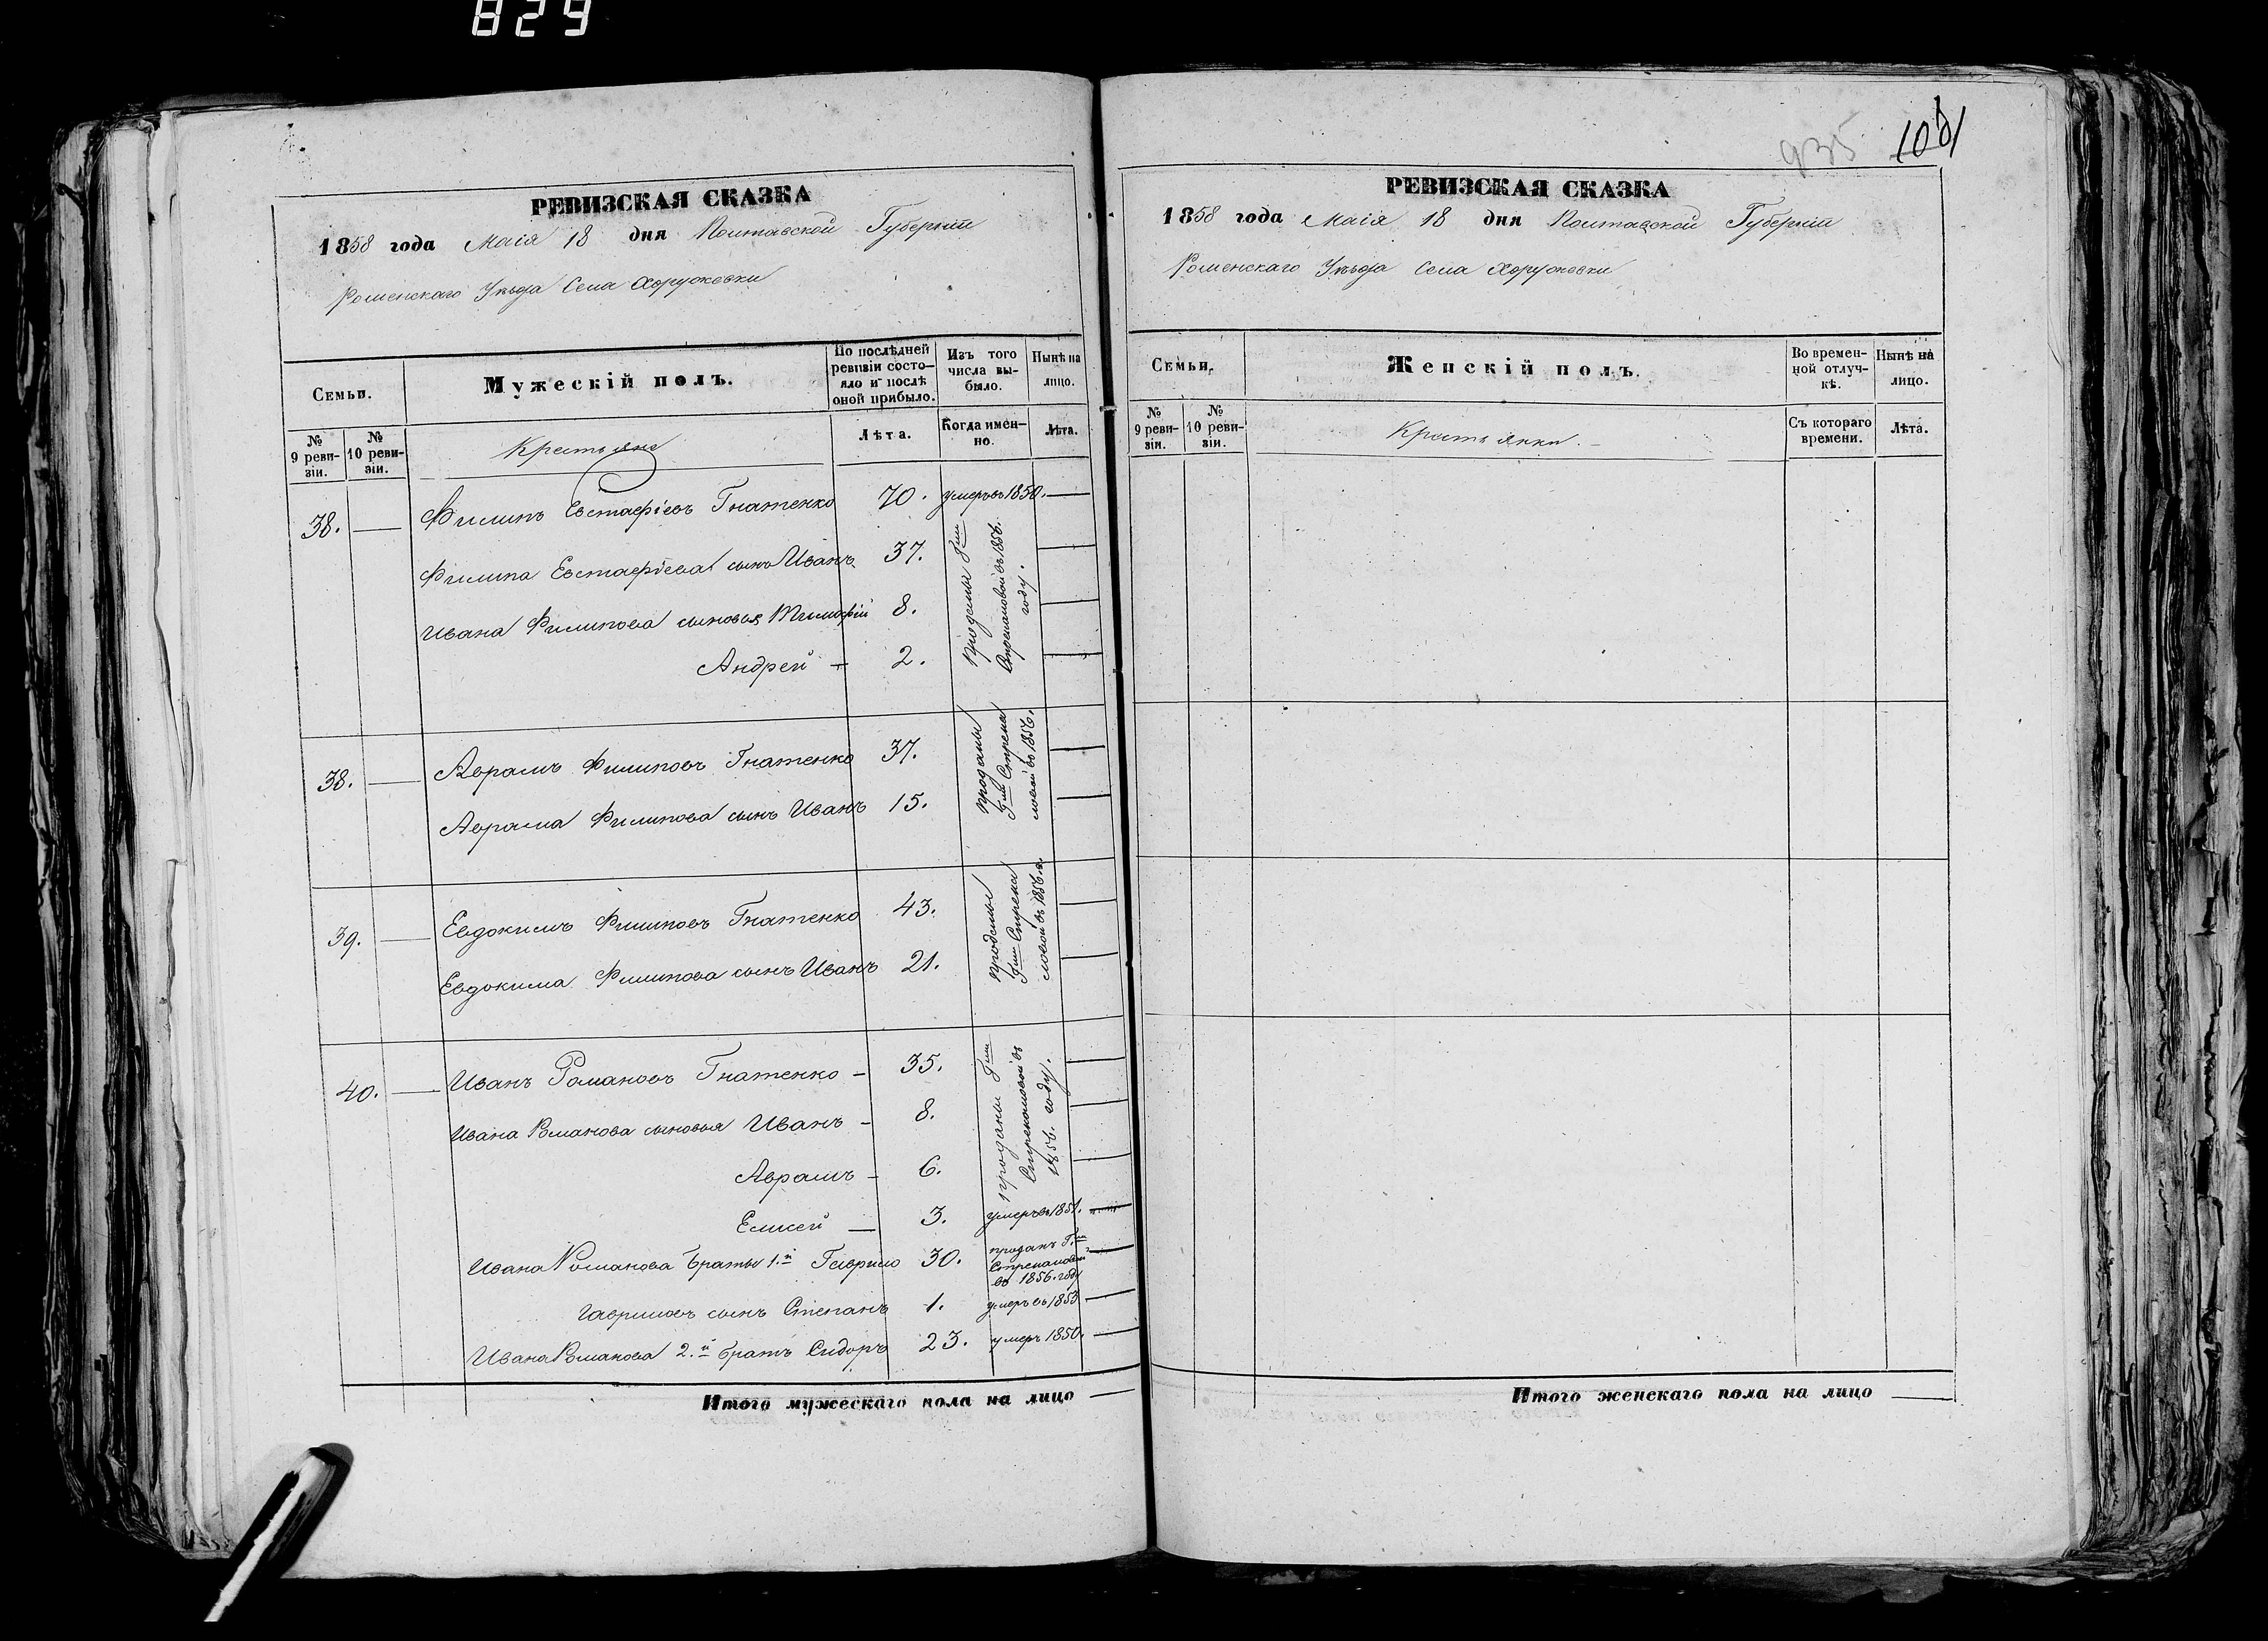 829
РЕВИЗСКАЯ СКАЗКА
1858 года Маія 18 дня Полтавской Губерніи
Роменскаго Уѣзда Села Хоружевки
Семьи.
Мужескій полъ.
По послѣдней ревизіи состояло и послѣ оной прибыло.
Изъ того числа выбыло.
Нынѣ на лицо.
№ 9 ревизіи.
№ 10 ревизіи.
Крестьяне
Лѣта.
Когда именно.
Лѣта.
38. — Филипъ Евстафіевъ Гнатенко 70. умеръ въ 1850. —
Филипа Евстафіева сынъ Иванъ 37. —
Ивана Филипова сыновья Тимофѣй 8. —
Андрей — 2. —
проданы Г-жи
въ 1856.
году.
38. — Аврамъ Филиповъ Гнатенко 37. —
Аврама Филипова сынъ Иванъ 15. —
проданы
въ 1856.
39. — Евдокимъ Филиповъ Гнатенко 43. —
Евдокима Филипова сынъ Иванъ 21. —
проданы
въ 1856.
40. — Иванъ Романовъ Гнатенко — 35. —
Ивана Романова сыновья Иванъ — 8. —
Аврамъ — 6. —
проданы
1856. году.
Елисей — 3. умеръ въ 1851. —
Ивана Романова братья 1.й Гаврило 30. проданъ
въ 1856. году —
Гавриловъ сынъ Степанъ 1. умеръ въ 1853 —
Ивана Романова 2.й братъ Сидоръ 23. умеръ 1850. —
Итого мужескаго пола на лицо —
935 1001
РЕВИЗСКАЯ СКАЗКА
1858 года Маія 18 дня Полтавской Губерніи
Роменскаго Уѣзда Села Хоружевки
Семьи.
Женскій полъ.
Во временной отлучкѣ.
Нынѣ на лицо.
№ 9 ревизіи.
№ 10 ревизіи.
Крестьянки. —
Съ котораго времени.
Лѣта.
Итого женскаго пола на лицо —